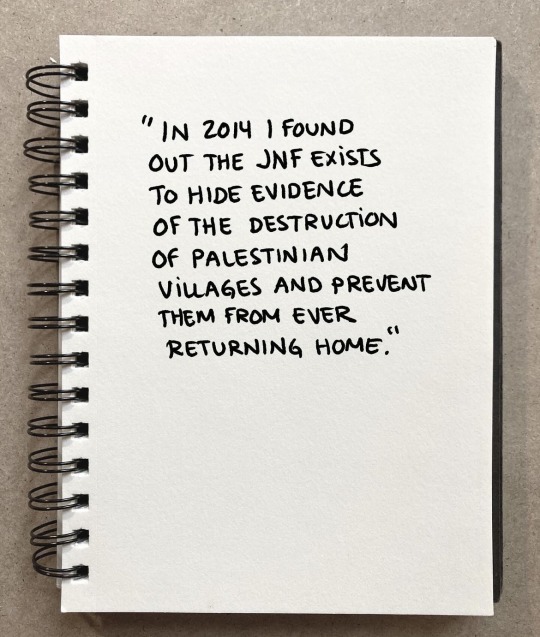 "IN 2014 I FOUND
OUT THE JNF EXISTS
TO HIDE EVIDENCE
OF THE DESTRUCTION
OF PALESTINIAN
VILLAGES AND PREVENT
THEM FROM EVER
RETURNING HOME."